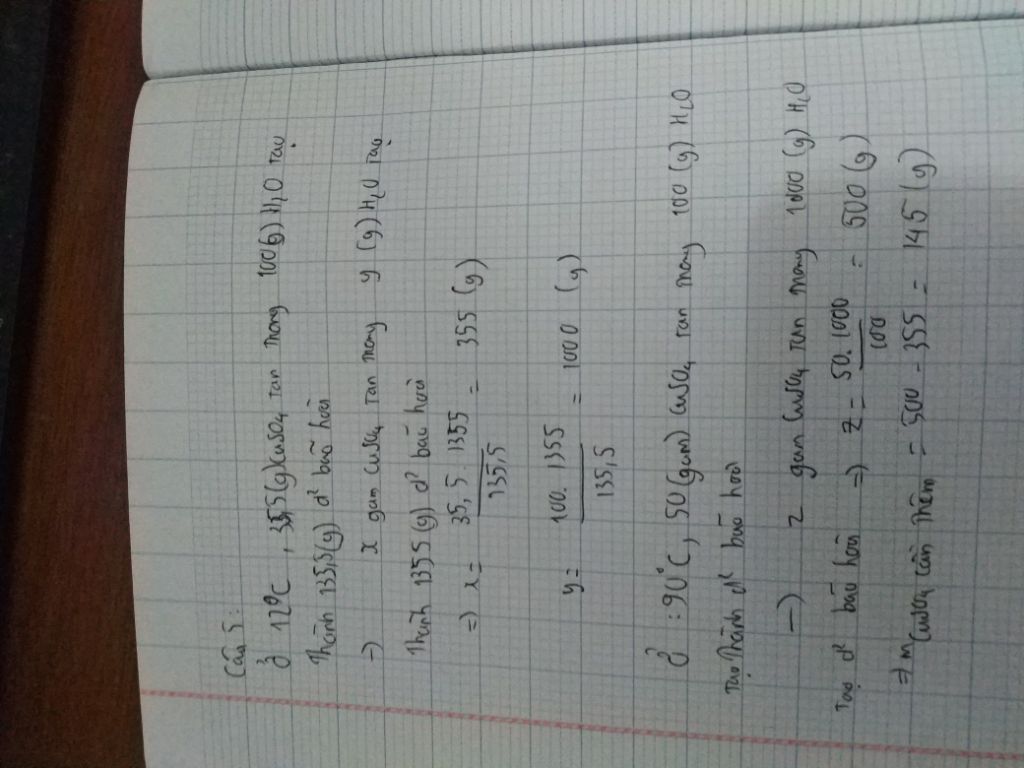 Câu 5:
Ở 12°C, 35,5(g) CuSO4 tan trong 100(g) H2O tạo
thành 135,5(g) d² bão hoà
→ x gam CuSO4 tan trong y (g) H2O tạo
thành 1355 (g) d² bão hoà
=> x = 35,5. 1355 / 135,5 = 355 (g)
y = 100. 1355 / 135,5 = 1000 (g)
Ở : 90°C, 50 (gam) CuSO4 tan trong 100 (g) H2O
tạo thành d² bão hoà
→ z gam CuSO4 tan trong 1000 (g) H2O
tạo d² bão hoà => z = 50. 1000 / 100 = 500 (g)
=> m CuSO4 cần thêm = 500 - 355 = 145 (g)